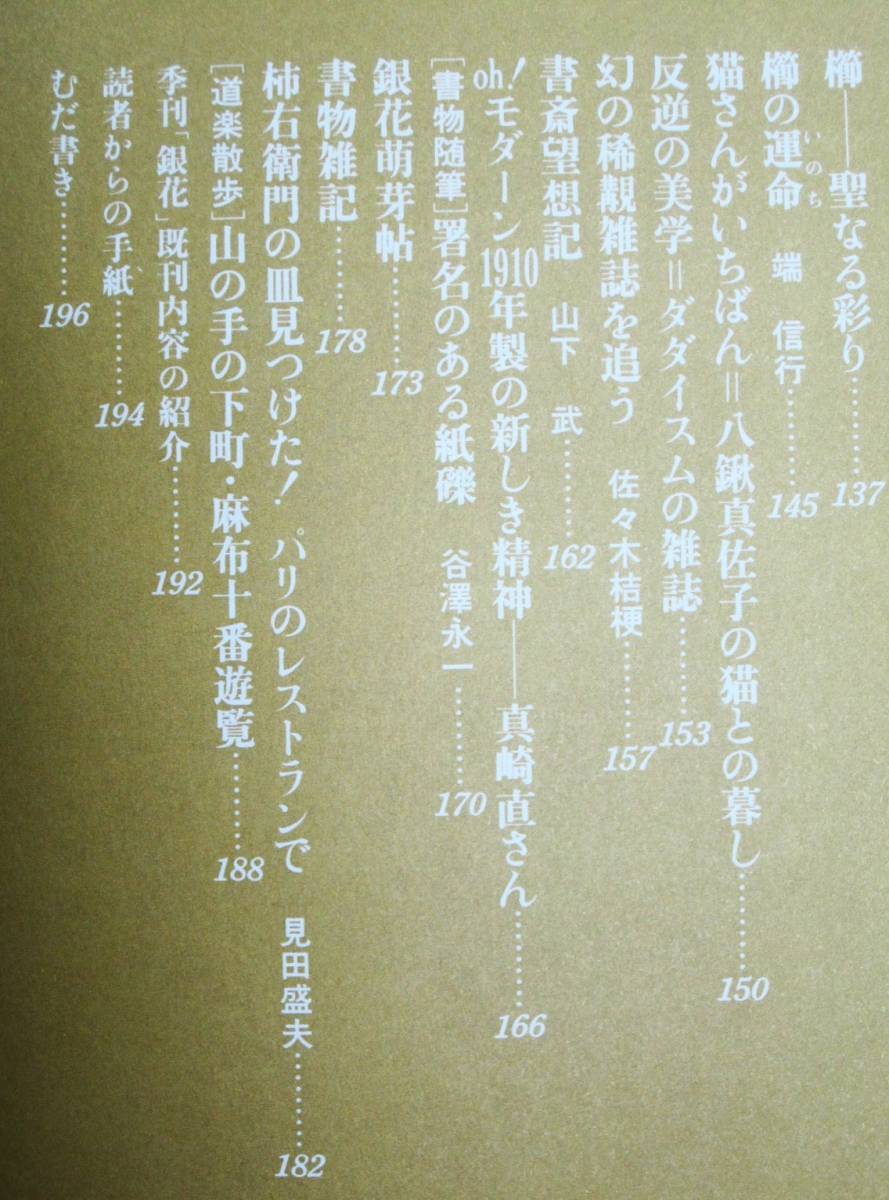 櫛――聖なる彩り………137
櫛の運命 端 信行………145
いのち
猫さんがいちばん＝八鍬真佐子の猫との暮し………150
反逆の美学＝ダダイスムの雑誌………153
幻の稀覯雑誌を追う 佐々木桔梗………157
書斎望想記 山下 武………162
oh！モダーン1910年製の新しき精神――真崎直さん………166
［書物随筆］署名のある紙礫 谷澤永一………170
銀花萌芽帖………173
書物雑記………178
柿右衛門の皿見つけた！ パリのレストランで 見田盛夫………182
［道楽散歩］山の手の下町・麻布十番遊覧………188
季刊「銀花」既刊内容の紹介………192
読者からの手紙………194
むだ書き………196